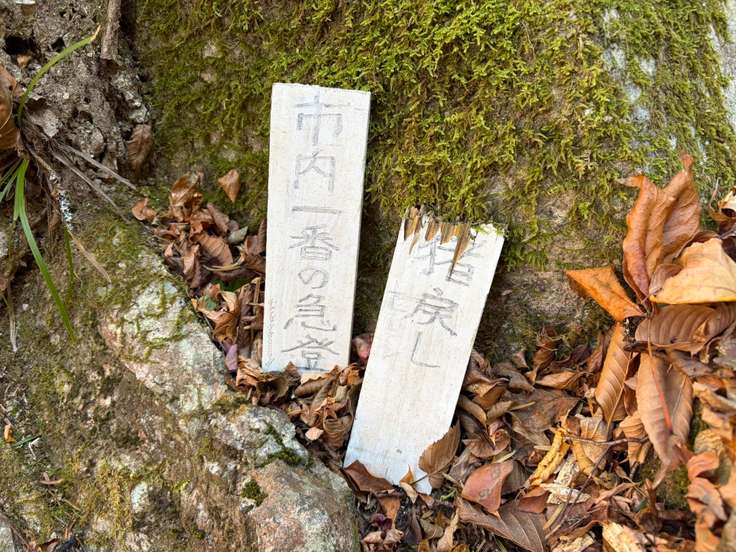 市内一番の急登
猪戻し